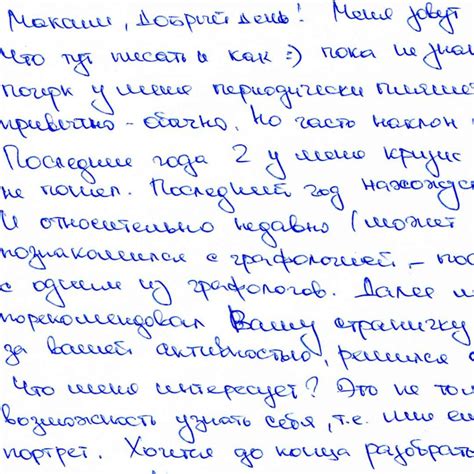 Максим, Добрый день! Меня зовут
Что тут писать и как :) пока не знаю
почерк у меня периодически пляшет
привычно - обычно. Но часть наклон
Последние года 2 у меня кризис
не пошел. Последний год нахожусь
И относительно недавно (может
познакомился с графологией, - пос
с одним из графологов. Далее и
порекомендовал Вашу страничку
за вашей активностью, решился
Что меня интересует? Это не тол
возможность узнать себя, т.е. мне
портрет. Хочется до конца разобрать